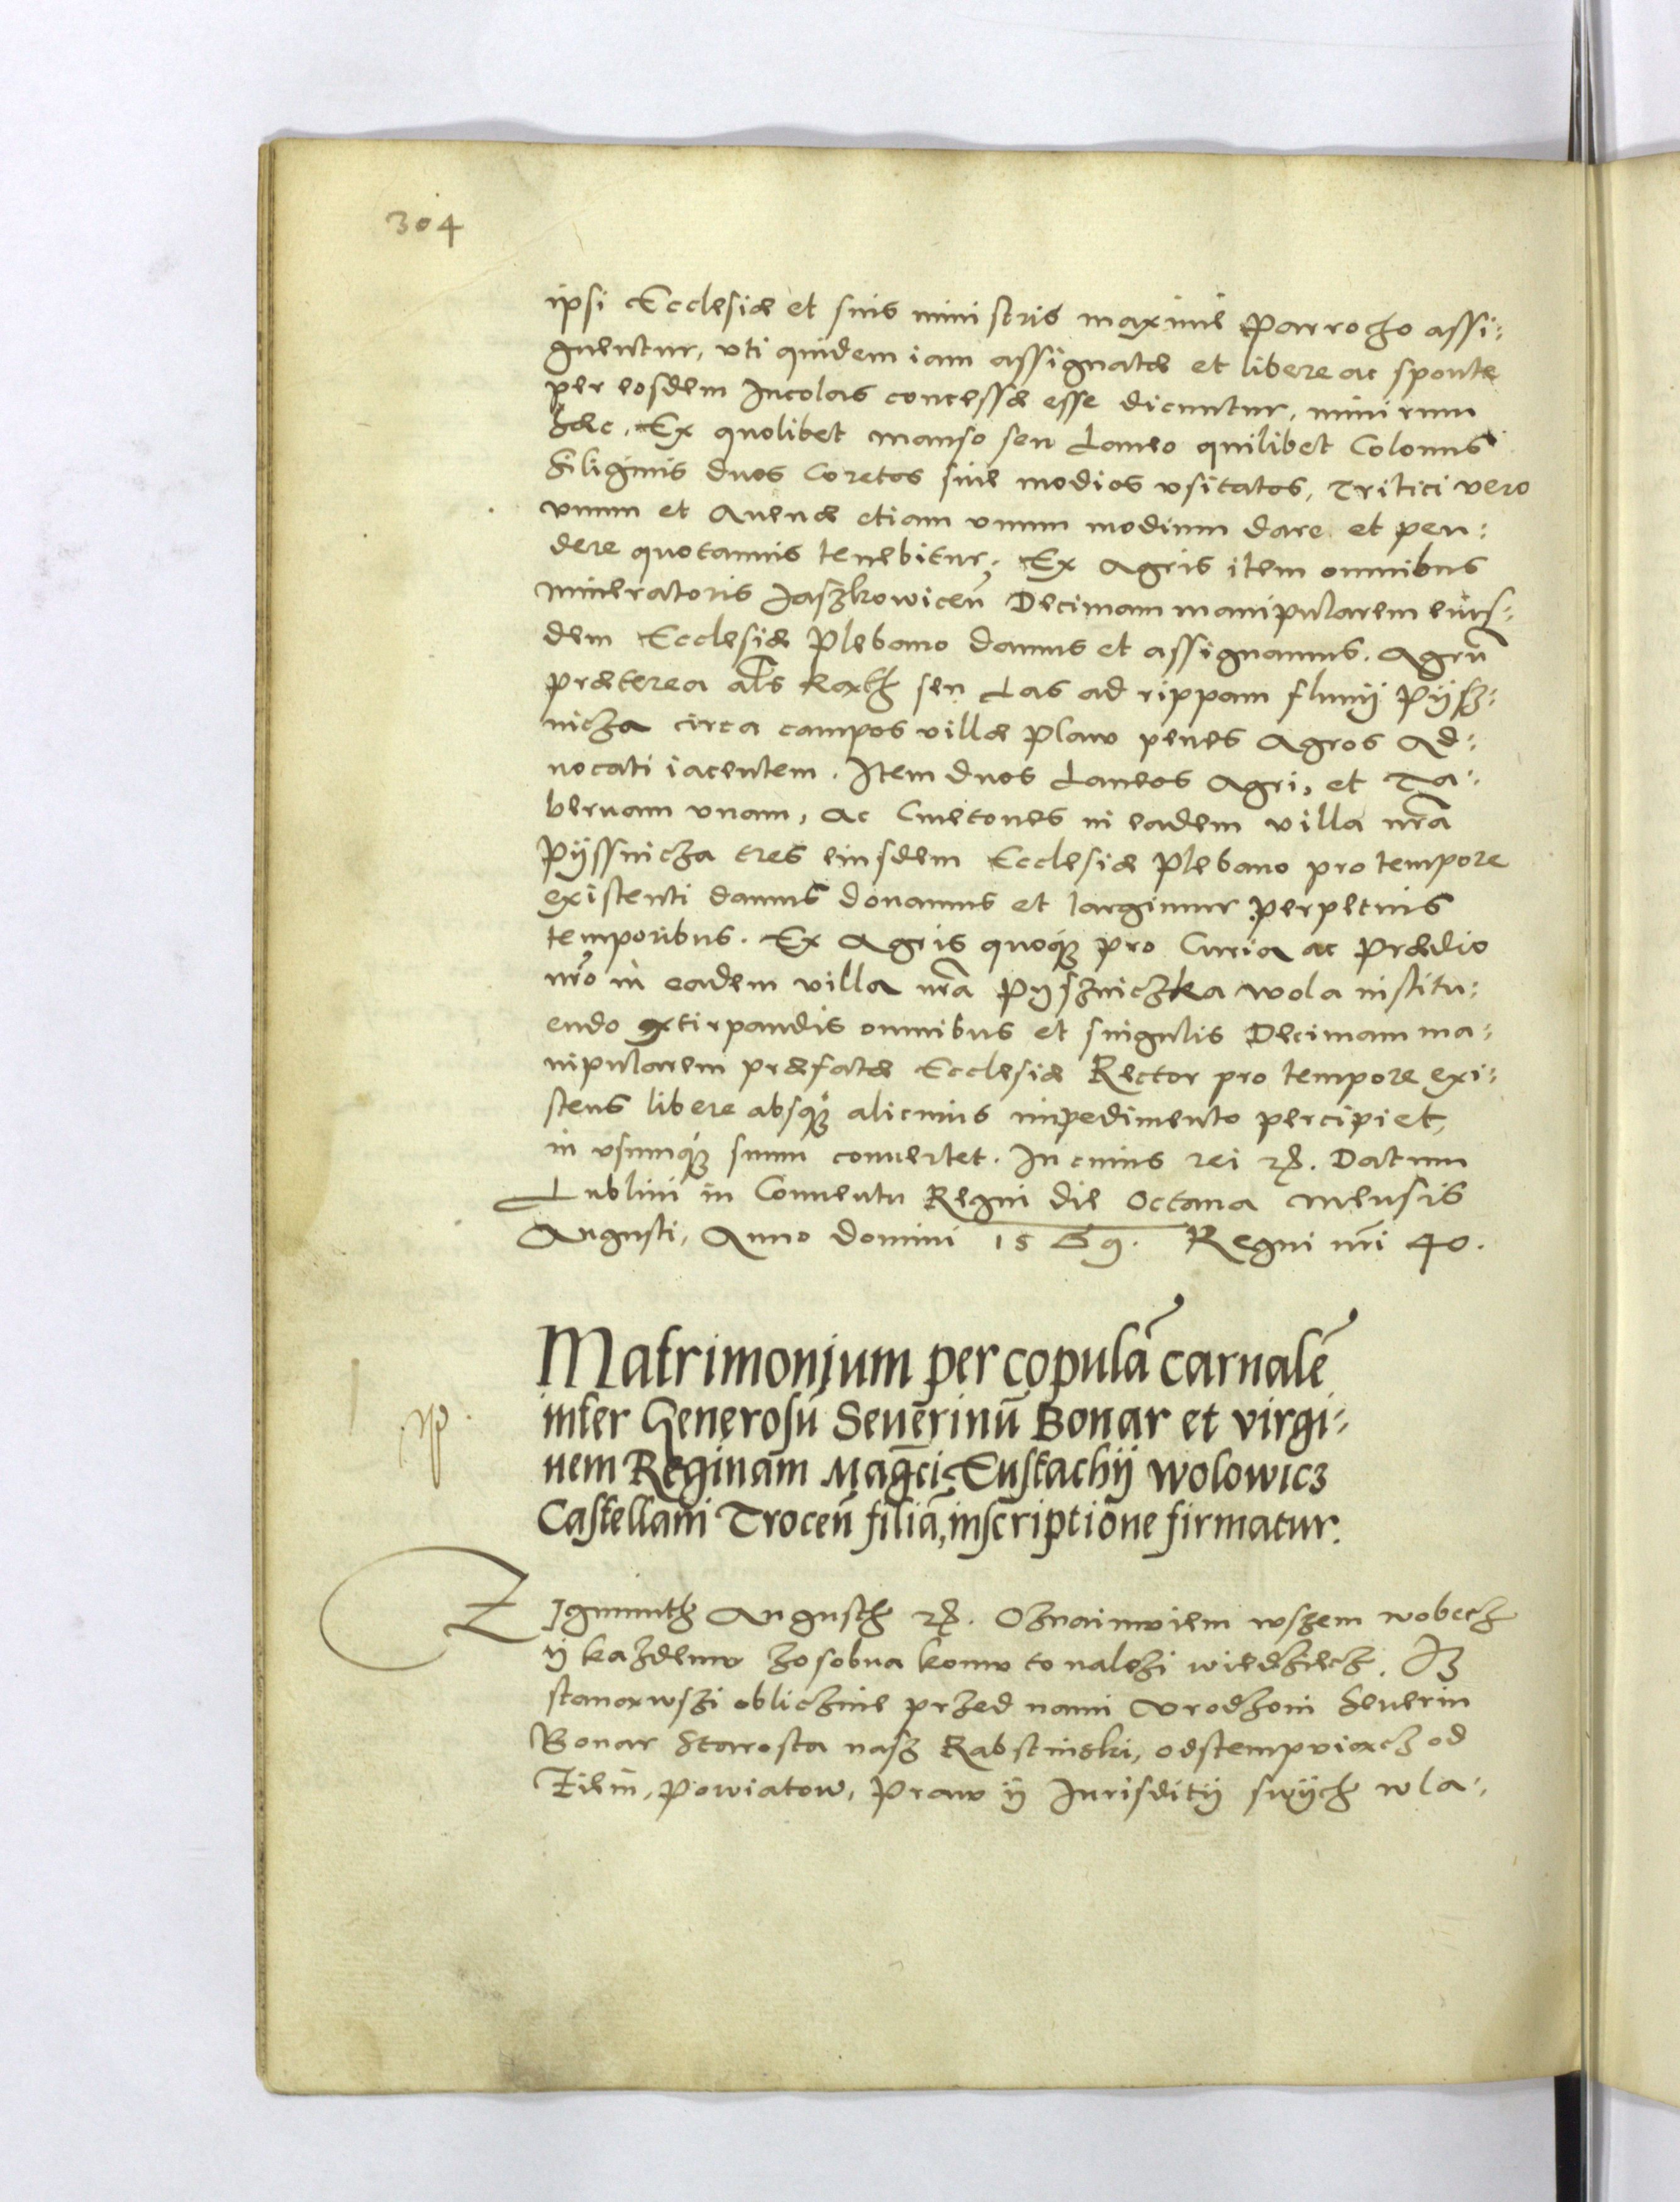 304
ipsi Ecclesiæ et suis ministris maxime Parrocho assi:
gnentur, vti quidem iam assignatæ et libere ac sponte
per eosdem Incolas concessæ esse dicuntur, nimirum
hæc. Ex quolibet manso seu Laneo quilibet Colonus
Siliginis duos Coretos siue modios vsitatos, Tritici vero
vnum et Auenæ etiam vnum modium dare et pen:
dere quotannis tenebitur. Ex Agris item omnibus
mineratoris Jaszkowiceñ Decimam manipularem eius:
dem Ecclesiæ Plebano damus et assignamus. Agrũ
præterea als Kąth seu Las ad rippam fluuij Pÿsz:
nicza circa campos villæ Plaw penes Agros Ad:
uocati iacentem. Item duos Laneos Agri, et Ta:
bernam vnam, ac Cmetones in eadem villa nr̃a
Pÿssnicza tres eiusdem Ecclesiæ Plebano pro tempore
existenti damus donamus et largimur perpetuis
temporibus. Ex Agris quoqꝫ pro Curia ac Prædio
nr̃o in eadem villa nr̃a Pyszniczka wola institu:
endo extirpandis omnibus et singulis Decimam ma:
nipularem præfatæ Ecclesiæ Rector pro tempore exi:
stens libere absqꝫ alicuius impedimento percipiet,
in vsumqꝫ suum conuertet. In cuius rei ꝛc̃. Datum
Lublini in Conuentu Regni die Octaua mensis
Augusti, Anno domini 1569. Regni nr̃i 40.
Matrimonium per copulã carnalẽ
inter Generosũ Seuerinũ Bonar et virgi:
nem Reginam Magci Eustachij Wolowicz
Castellani Troceñ filiã, inscriptione firmatur.
Zÿgmunth Augusth ꝛc̃. Oznaimuiem wszem wobecz
ÿ kazdemu zosobna komu to nalezi wiedziecz. Iz
stanąwszi oblicznie przed nami Vrodzoni Seuerin
Bonar Starosta nasz Rabstinski, odstempuiącz od
Ziem, Powiatow, Praw ÿ Jurisditij swÿch wla: